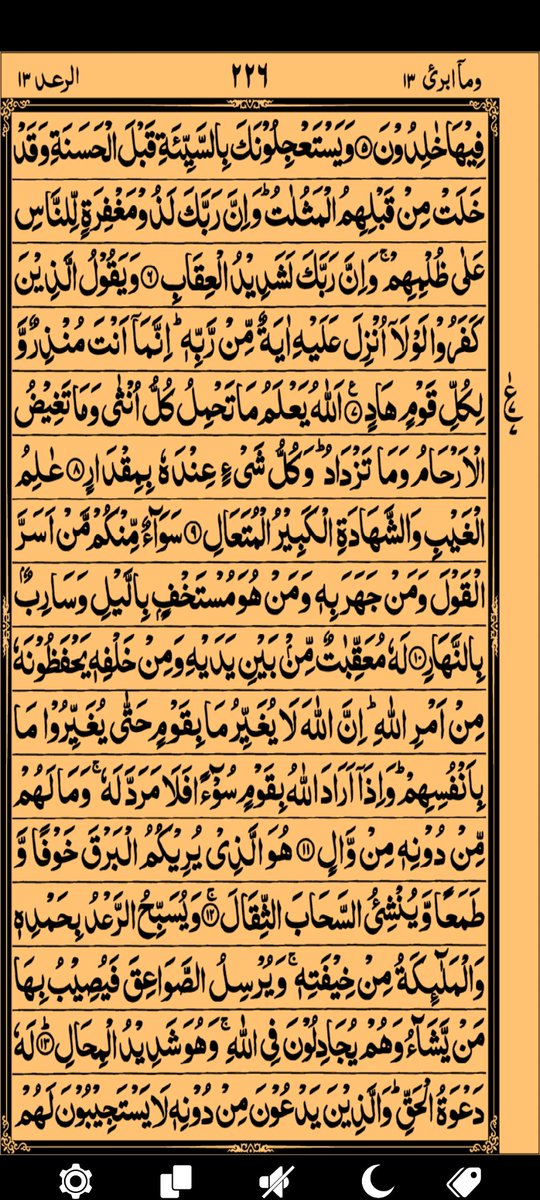 ومآ ابرئ ١٣ ٢٢٦ الرعد ١٣
فِيْهَا خٰلِدُوْنَ ۝٥ وَيَسْتَعْجِلُوْنَكَ بِالسَّيِّئَةِ قَبْلَ الْحَسَنَةِ وَقَدْ
خَلَتْ مِنْ قَبْلِهِمُ الْمَثُلٰتُ ؕ وَاِنَّ رَبَّكَ لَذُوْ مَغْفِرَةٍ لِّلنَّاسِ
عَلٰى ظُلْمِهِمْ ۚ وَاِنَّ رَبَّكَ لَشَدِيْدُ الْعِقَابِ ۝٦ وَيَقُوْلُ الَّذِيْنَ
كَفَرُوْا لَوْلَاۤ اُنْزِلَ عَلَيْهِ اٰيَةٌ مِّنْ رَّبِّهٖ ؕ اِنَّمَاۤ اَنْتَ مُنْذِرٌ وَّ
لِكُلِّ قَوْمٍ هَادٍ ۝٧ اَللّٰهُ يَعْلَمُ مَا تَحْمِلُ كُلُّ اُنْثٰى وَمَا تَغِيْضُ
الْاَرْحَامُ وَمَا تَزْدَادُ ؕ وَكُلُّ شَىْءٍ عِنْدَهٗ بِمِقْدَارٍ ۝٨ عٰلِمُ
الْغَيْبِ وَالشَّهَادَةِ الْكَبِيْرُ الْمُتَعَالِ ۝٩ سَوَآءٌ مِّنْكُمْ مَّنْ اَسَرَّ
الْقَوْلَ وَمَنْ جَهَرَ بِهٖ وَمَنْ هُوَ مُسْتَخْفٍۭ بِالَّيْلِ وَسَارِبٌۢ
بِالنَّهَارِ ۝١٠ لَهٗ مُعَقِّبٰتٌ مِّنْۢ بَيْنِ يَدَيْهِ وَمِنْ خَلْفِهٖ يَحْفَظُوْنَهٗ
مِنْ اَمْرِ اللّٰهِ ؕ اِنَّ اللّٰهَ لَا يُغَيِّرُ مَا بِقَوْمٍ حَتّٰى يُغَيِّرُوْا مَا
بِاَنْفُسِهِمْ ؕ وَاِذَاۤ اَرَادَ اللّٰهُ بِقَوْمٍ سُوْٓءًا فَلَا مَرَدَّ لَهٗ ۚ وَمَا لَهُمْ
مِّنْ دُوْنِهٖ مِنْ وَّالٍ ۝١١ هُوَ الَّذِىْ يُرِيْكُمُ الْبَرْقَ خَوْفًا وَّ
طَمَعًا وَّيُنْشِئُ السَّحَابَ الثِّقَالَ ۝١٢ وَيُسَبِّحُ الرَّعْدُ بِحَمْدِهٖ
وَالْمَلٰٓئِكَةُ مِنْ خِيْفَتِهٖ ۚ وَيُرْسِلُ الصَّوَاعِقَ فَيُصِيْبُ بِهَا
مَنْ يَّشَآءُ وَهُمْ يُجَادِلُوْنَ فِى اللّٰهِ ۚ وَهُوَ شَدِيْدُ الْمِحَالِ ۝١٣ لَهٗ
دَعْوَةُ الْحَقِّ ؕ وَالَّذِيْنَ يَدْعُوْنَ مِنْ دُوْنِهٖ لَا يَسْتَجِيْبُوْنَ لَهُمْ